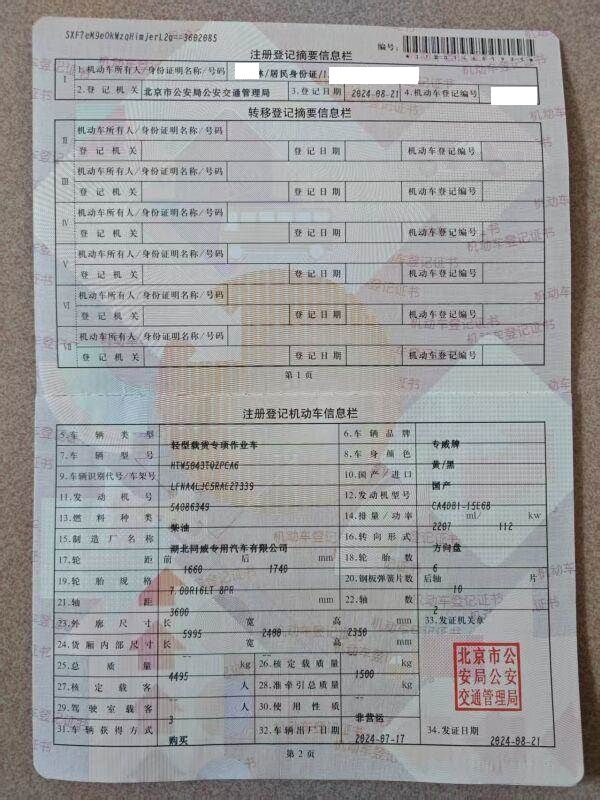 SXF7eM9oOkWzqHimjerL2g==3602085
编号:
注册登记摘要信息栏
I 1.机动车所有人/身份证明名称/号码 林/居民身份证/
2.登记机关 北京市公安局公安交通管理局 3.登记日期 2024-08-21 4.机动车登记编号
转移登记摘要信息栏
II 机动车所有人/身份证明名称/号码
登记机关 登记日期 机动车登记编号
III 机动车所有人/身份证明名称/号码
登记机关 登记日期 机动车登记编号
IV 机动车所有人/身份证明名称/号码
登记机关 登记日期 机动车登记编号
V 机动车所有人/身份证明名称/号码
登记机关 登记日期 机动车登记编号
VI 机动车所有人/身份证明名称/号码
登记机关 登记日期 机动车登记编号
VII 机动车所有人/身份证明名称/号码
登记机关 登记日期 机动车登记编号
第1页
注册登记机动车信息栏
5.车辆类型 轻型载货专项作业车 6.车辆品牌 专威牌
7.车辆型号 HTW5043TQZPCA6 8.车身颜色 黄/黑
9.车辆识别代号/车架号 LFNA4LJC5RAE27339 10.国产/进口 国产
11.发动机号 54086349 12.发动机型号 CA4DB1-15E6B
13.燃料种类 柴油 14.排量/功率 2207 ml/ 112 kw
15.制造厂名称 湖北同威专用汽车有限公司 16.转向形式 方向盘
17.轮距 前 1660 后 1740 mm 18.轮胎数 6
19.轮胎规格 7.00R16LT 8PR 20.钢板弹簧片数 后轴 10 片
21.轴距 3600 mm 22.轴数 2
23.外廓尺寸 长 5995 宽 2400 高 2350 mm 33.发证机关章
24.货厢内部尺寸 长 宽 高 mm
25.总质量 4495 kg 26.核定载质量 1500 kg
27.核定载客 人 28.准牵引总质量 kg
29.驾驶室载客 3 人 30.使用性质 非营运
31.车辆获得方式 购买 32.车辆出厂日期 2024-07-17 34.发证日期 2024-08-21
北京市公
安局公安
交通管理局
第2页